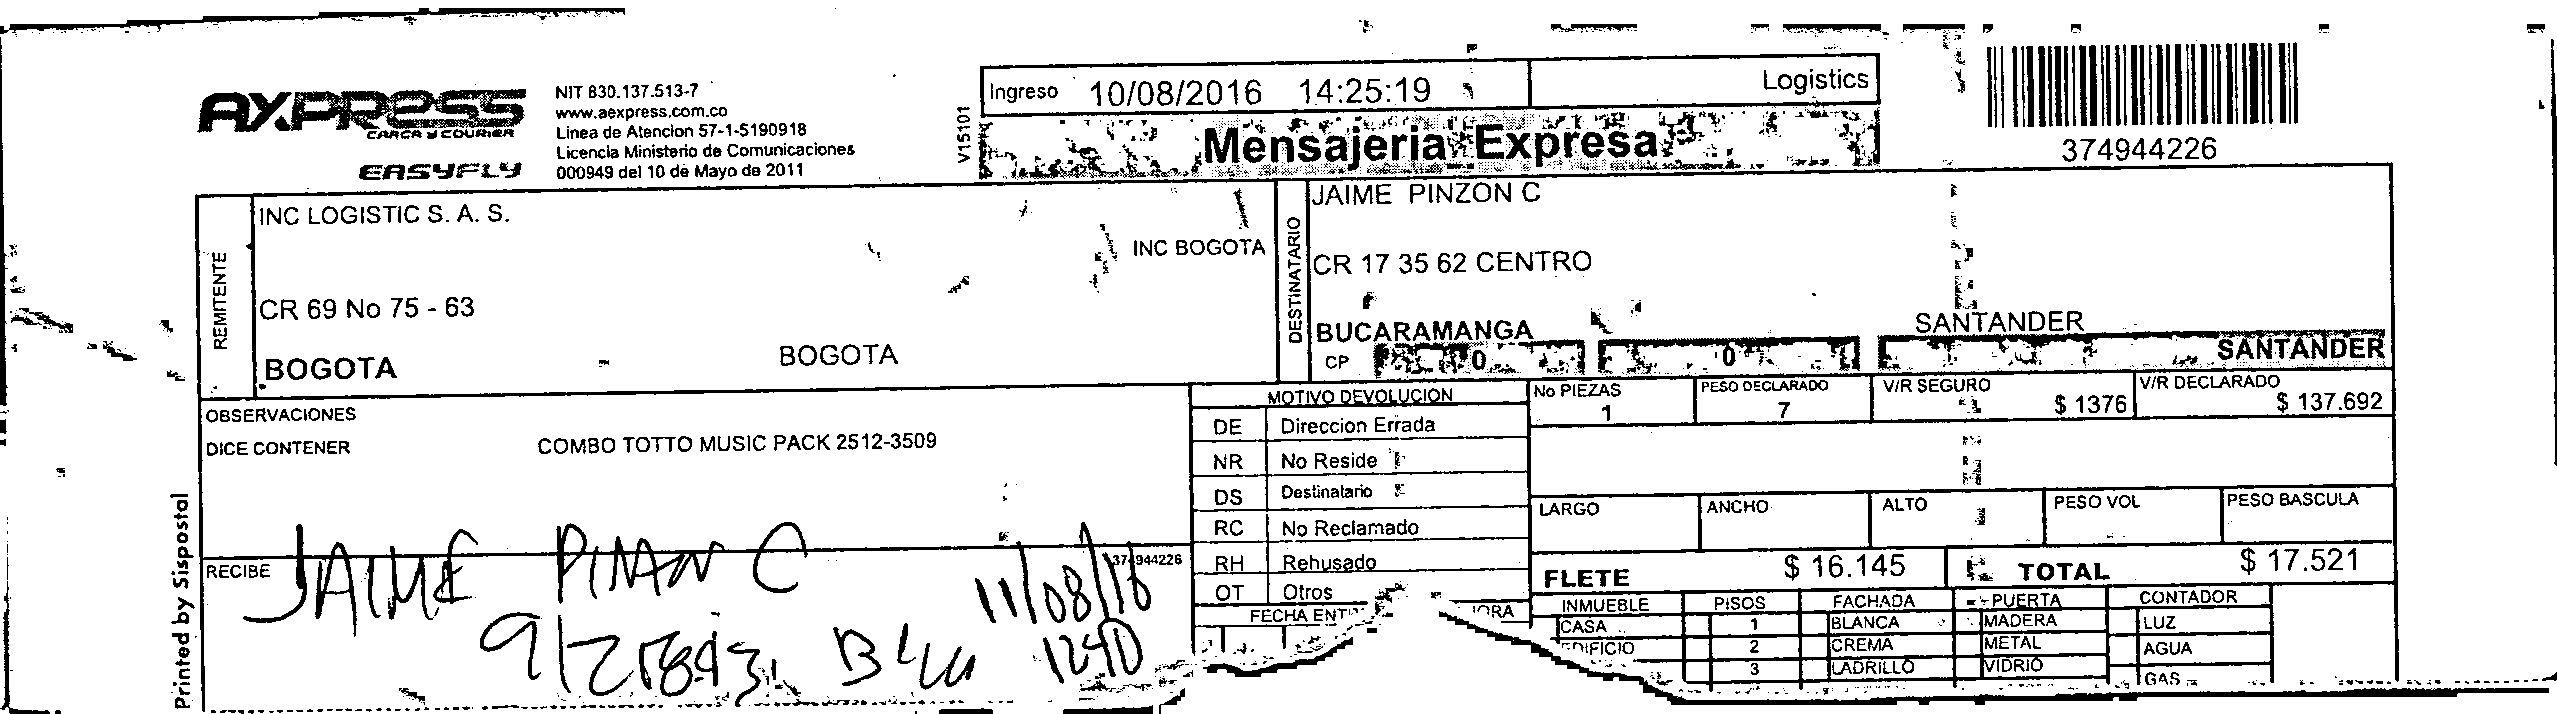 AXPRESS
CARGA Y COURIER
EASYFLY
NIT 830.137.513-7
www.aexpress.com.co
Linea de Atencion 57-1-5190918
Licencia Ministerio de Comunicaciones
000949 del 10 de Mayo de 2011
V15101
Ingreso 10/08/2016 14:25:19 Logistics
Mensajeria Expresa
374944226
REMITENTE
INC LOGISTIC S. A. S.
INC BOGOTA
CR 69 No 75 - 63
BOGOTA BOGOTA
DESTINATARIO
JAIME PINZON C
CR 17 35 62 CENTRO
BUCARAMANGA SANTANDER
CP 0 0 SANTANDER
OBSERVACIONES
DICE CONTENER COMBO TOTTO MUSIC PACK 2512-3509
MOTIVO DEVOLUCION
DE Direccion Errada
NR No Reside
DS Destinatario
RC No Reclamado
RH Rehusado
OT Otros
No PIEZAS 1
PESO DECLARADO 7
V/R SEGURO $ 1376
V/R DECLARADO $ 137.692
LARGO ANCHO ALTO PESO VOL PESO BASCULA
FLETE $ 16.145 TOTAL $ 17.521
RECIBE
374944226
JAIME PINZON C
11/08/16
1240
INMUEBLE PISOS FACHADA PUERTA CONTADOR
CASA 1 BLANCA MADERA LUZ
EDIFICIO 2 CREMA METAL AGUA
3 LADRILLO VIDRIO GAS
Printed by Sispostal